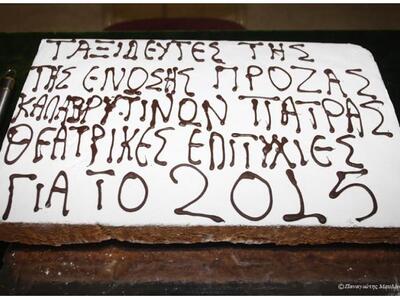 ΤΑΞΙΔΕΥΤΕΣ ΤΗΣ
ΤΗΣ ΕΝΩΣΗΣ ΠΡΟΖΑΣ
ΚΑΛΑΒΡΥΤΙΝΩΝ ΠΑΤΡΑΣ
ΘΕΑΤΡΙΚΕΣ ΕΠΙΤΥΧΙΕΣ
ΓΙΑ ΤΟ 2015
©Παναγιώτης